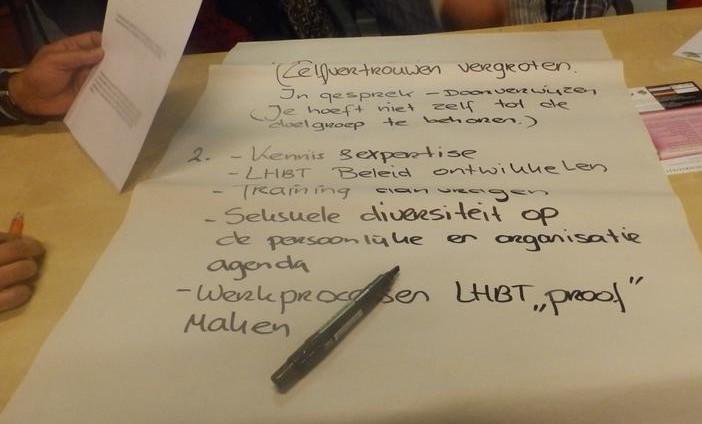 (Zelfvertrouwen vergroten.
In gesprek - Doorverwijzen
(Je hoeft niet zelf tot de
doelgroep te behoren.)
2. - Kennis & expertise
- LHBT Beleid ontwikkelen
- Training aanvragen
- Seksuele diversiteit op
de persoonlijke en organisatie
agenda
- Werkprocessen LHBT „proof”
Maken